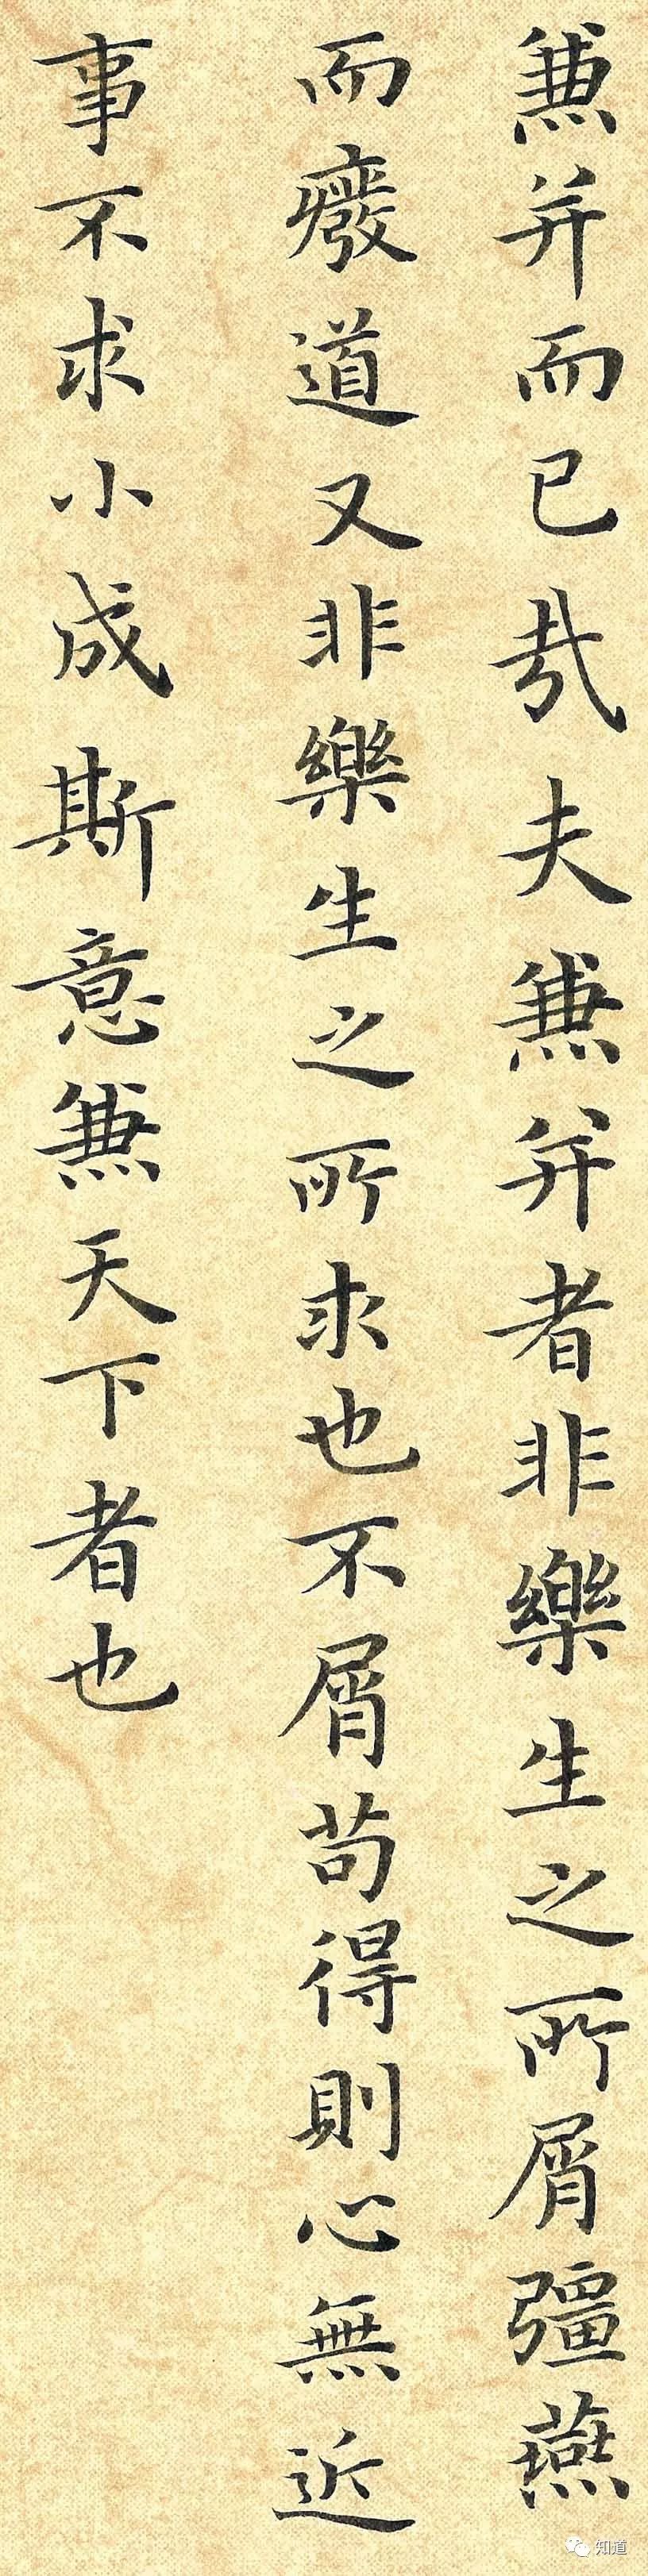 兼并而已哉夫兼并者非樂生之所屑彊燕
而癈道又非樂生之所求也不屑苟得則心無近
事不求小成斯意兼天下者也
知道